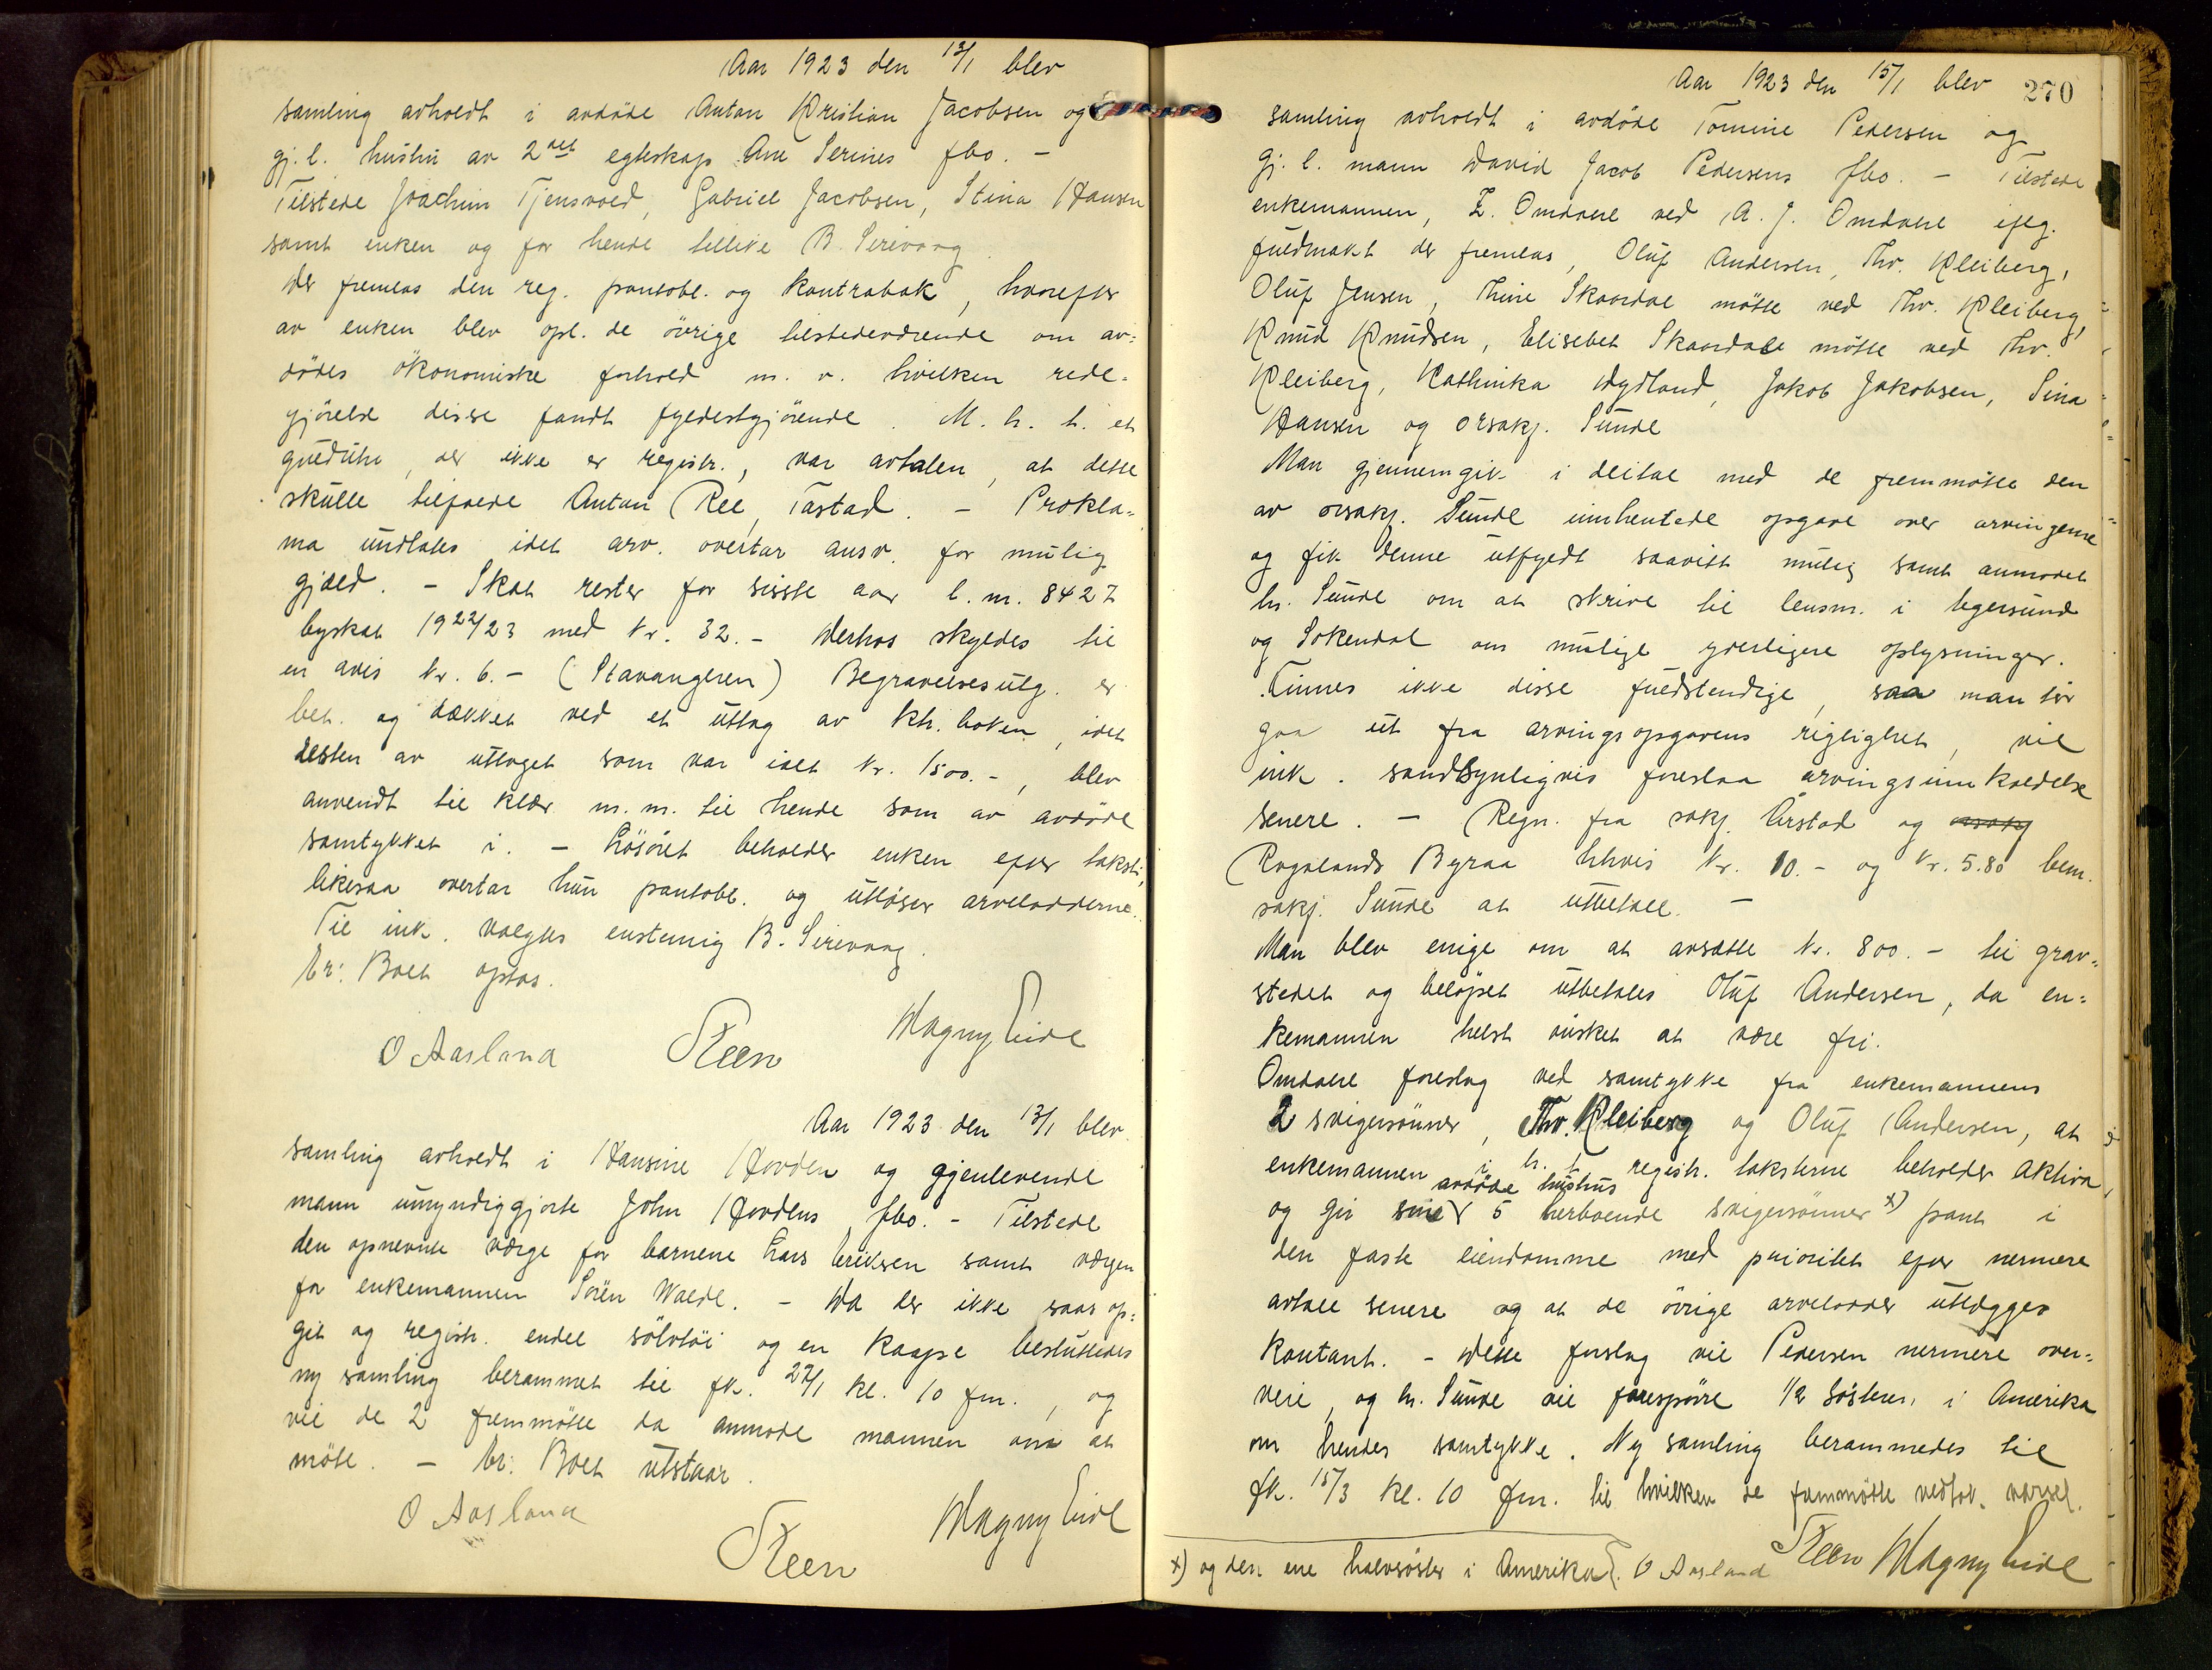 Aar 1923 den 12/1 blev
samling avholdt i avdöde Anton Kristian Jacobsen og
gj. l. hustru av 2det egteskap Ane Serines fbo. -
Tilstede Joachim Tjensvold, Gabriel Jacobsen, Stina Hansen
samt enken og for hende tillike B. Sirevaag.
Der fremlas den reg. pantobl. og kontrabok, hvorefter
av enken blev opl. de övrige tilstedeværende om av-
dödes ökonomiske forhold m. v. hvilken rede-
gjörelse disse fandt fyldestgjörende. M. h. t. et
gulduhr, der ikke er registr., var avtalen, at dette
skulde tilfalde Anton Ree, Tastad. - Prokla-
ma undlates idet arv. overtar ansv. for mulig
gjæld. - Skat rester for sisste aar l. nr. 8427
byskat 1922/23 med kr. 32. - Derhos skyldes til
en avis kr. 6. - (Stavangeren) Begravelsesutg. er
bet. og dækket ved et uttag av ktr. boken, idet
resten av uttaget som var ialt kr. 1500.-, blev
anvendt til klær m. m. til hende som av avdöde
samtykket i. - Lösöret beholder enken efter takst
likesaa overtar hun pantobl. og utlöser arvelodderne.
Til ink. valgtes enstemig B. Sirevaag.
Er: Boet optas.
O Aasland Steen Magny Eide
Aar 1923 den 13/1 blev
samling avholdt i Hansine Hovden og gjenlevende
mann umyndiggjorte John Hovdens fbo. - Tilstede
den opnevnte værge for barnene Lars Eriksen samt værgen
for enkemannen Sören Walde. - Da der ikke saas op-
git og registr. endel sölvtöi og en kaape besluttedes
ny samling berammet til fk. 27/1 kl. 10 fm., og
vil de 2 fremmötte da anmode mannen om at
möte. - Er: Boet utstaar.
O Aasland Steen Magny Eide
Aar 1923 den 15/1 blev 270
samling avholdt i avdöde Tomine Pedersen og
gj. l. mann David Jacob Pedersens fbo. - Tilstede
enkemannen, Z. Omdahl ved A. J. Omdahl iflg.
fuldmakt der fremlas, Oluf Andersen, Thv. Kleiberg,
Oluf Jensen, Thine Skaardal mötte ved Thv. Kleiberg,
Knud Knudsen, Elisebet Skaardal mötte ved Thv.
Kleiberg, Kathinka Dydland, Jakob Jakobsen, Sina
Hansen og orsakf. Sunde
Man gjennemgik i deital med de fremmötte den
av orsakf. Sunde innhentede opgave over arvingerne
og fik denne utfyldt saavitt mulig samt anmodet
hr. Sunde om at skrive til lensm. i Egersund
og Sokendal om mulige yderligere oplysninger.
Finnes ikke disse fuldstendige, saa man tör
gaa ut fra arvingsopgavens rigtighet, vil
ink. sandsynligvis foreslaa arvingsinnkaldelse
senere. - Regn. fra sakf. Årstad og orsakf
Rogalands Byraa hhvis kr. 10.- og kr. 5.80 bem.
sakf. Sunde at utbetale. -
Man blev enige om at avsætte kr. 800. - til grav-
stedet og belöpet utbetales Oluf Andersen, da en-
kemannen helst önsket at være fri.
Omdahl foreslog ved samtykke fra enkemannens
2 svigersönner, Thv. Kleiberg og Oluf Andersen, at
enkemannen i h. t. registr. taksterne beholder aktiva,
avdöde hustrus
og gir sine 5 herboende svigersönner x) pant i
den faste eiendomme med prioritet efter nermere
avtale senere og at de övrige arvelodder utlægges
kontant. - Dette forslag vil Pedersen nermere over-
veie, og hr. Sunde vil forespörre 1/2 sösteren i Amerika
om hendes samtykke. Ny samling berammedes til
fk. 15/3 kl. 10 fm. til hvilken de fremmötte vedtok varsel.
x) og den ene halvsöster i Amerika. O Aasland Steen Magny Eide